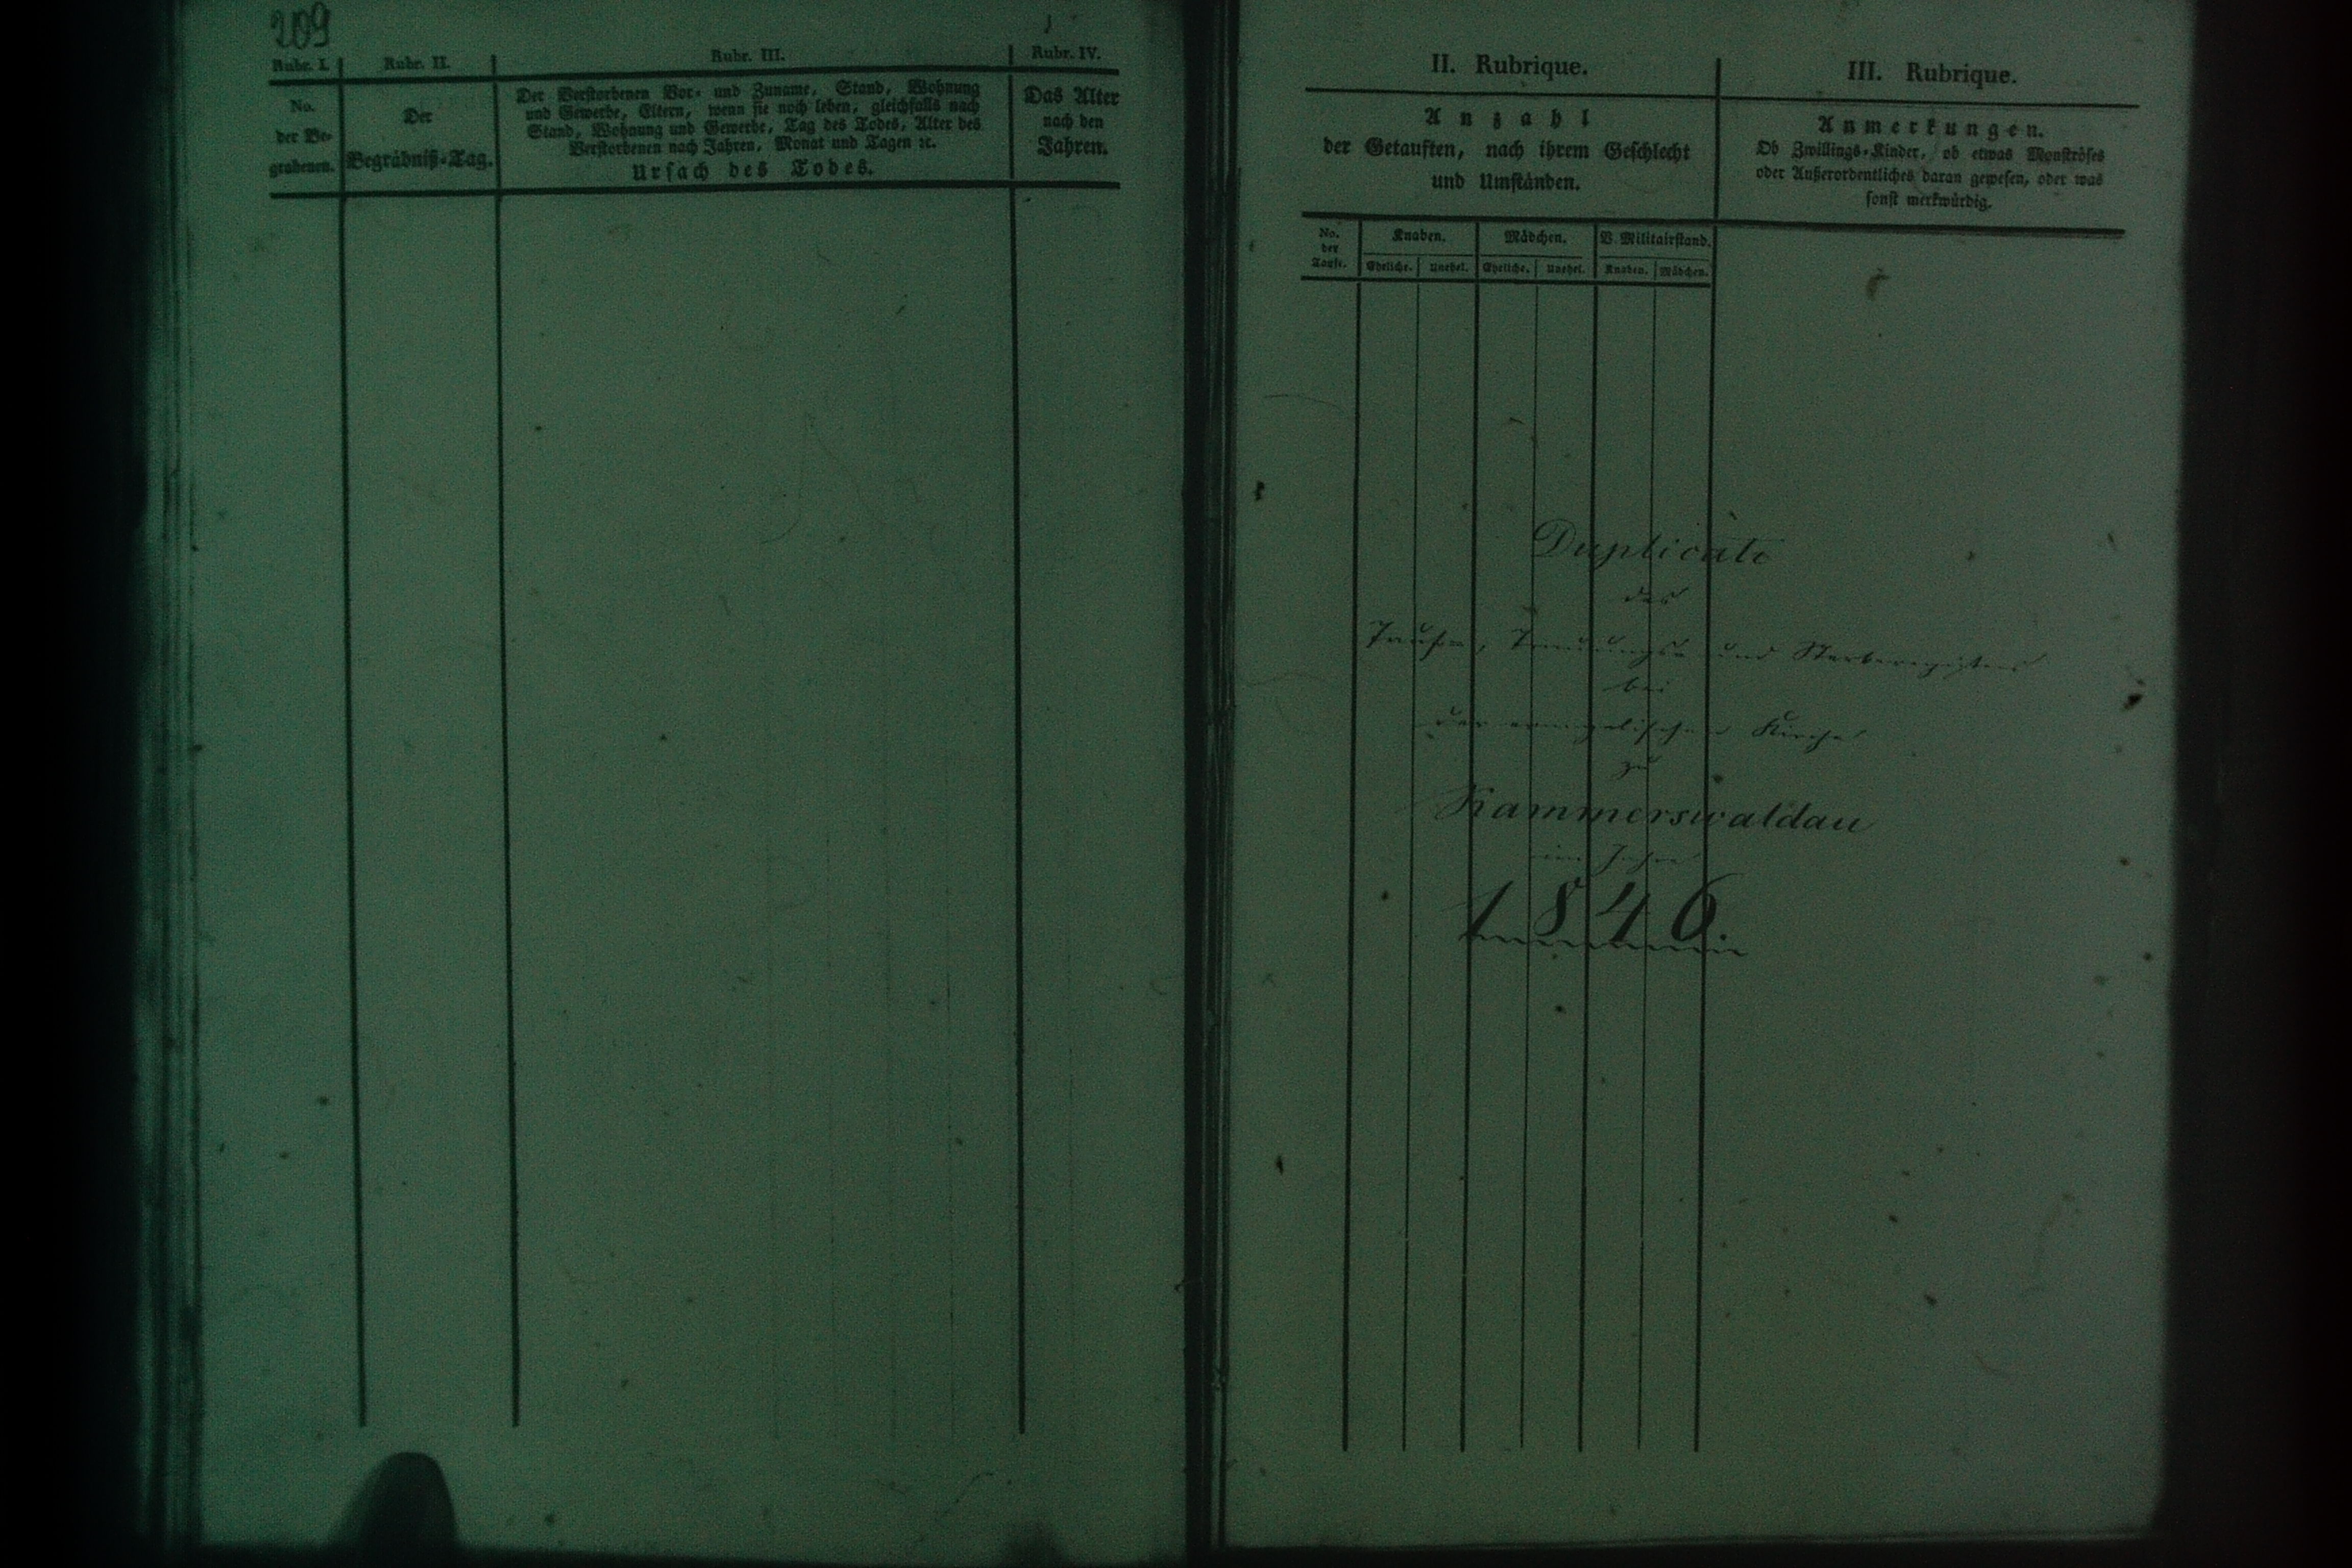 209
Rubr. I.
Rubr. II.
Rubr. III.
Rubr. IV.
No.
der Be-
grabenen.
Der
Begräbniß-Tag.
Der Verstorbenen Vor- und Zuname, Stand, Wohnung
und Gewerbe, Eltern, wenn sie noch leben, gleichfalls nach
Stand, Wohnung und Gewerbe, Tag des Todes, Alter des
Verstorbenen nach Jahren, Monat und Tagen ꝛc.
Ursach des Todes.
Das Alter
nach den
Jahren.
II. Rubrique.
III. Rubrique.
Anzahl
der Getauften, nach ihrem Geschlecht
und Umständen.
Anmerkungen.
Ob Zwillings-Kinder, ob etwas Monströses
oder Außerordentliches daran gewesen, oder was
sonst merkwürdig.
No.
der
Taufe.
Knaben.
Mädchen.
V. Militairstand.
Eheliche.
Unehel.
Eheliche.
Unehel.
Knaben.
Mädchen.
Duplicate
des
Taufen, Trauungs- und Sterberegisters
bei
der evangelischen Kirche
zu
Kammerswaldau
im Jahre
1846.